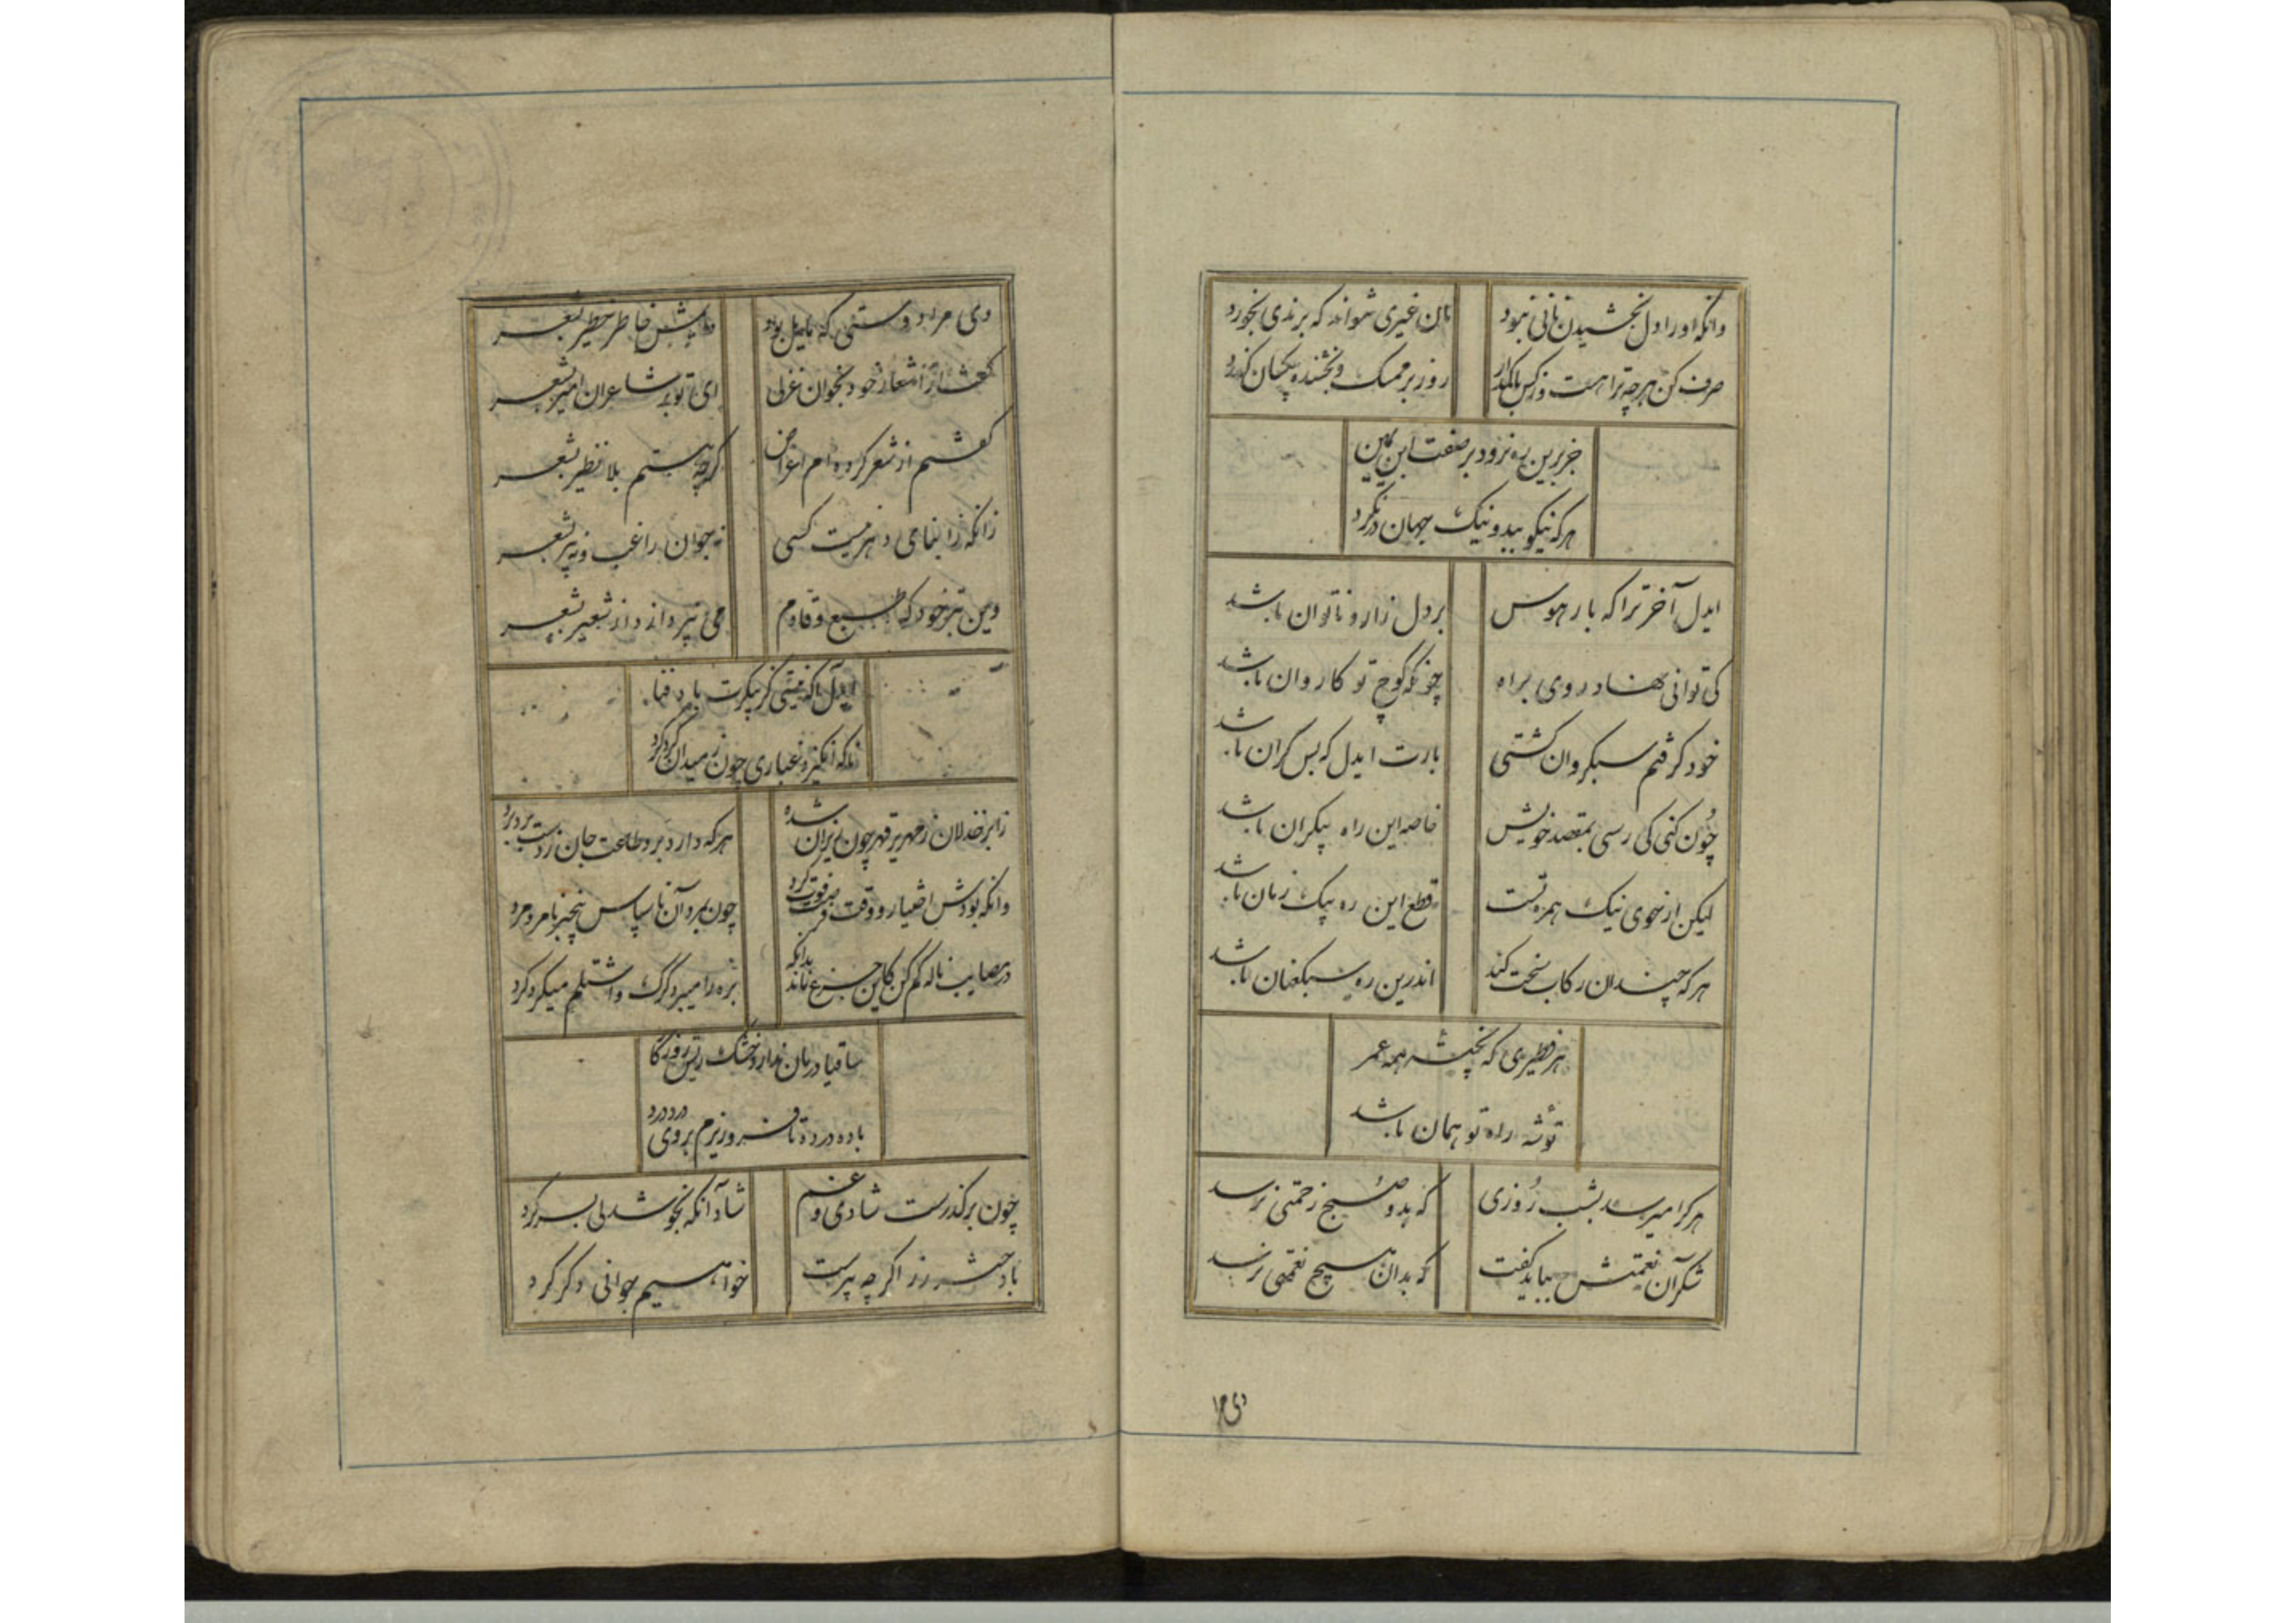 وانکه او را دل بخشیدن نانی نبود نان غیری نتواند که برندی بخورد
صرف کن هرچه ترا هست وزکس باک مدار روز بر ممسک و بخشنده یکسان گذرد
جز برین ره نرود بر صفت ابن یمین
هرکه نیکو ببد و نیک جهان درنگرد
ایدل آخر ترا که بار هوس بر دل زار و ناتوان باشد
کی توانی نهاد روی براه چونکه کوچ تو کاروان باشد
خود گرفتم سبکروان گشتی بارت ایدل که بس گران باشد
چون کنی کی رسی بمقصد خویش خاصه این راه بیکران باشد
لیکن ار خوی نیک همره تست قطع این ره بیک زمان باشد
هرکه چندان رکاب سخت کند اندرین ره سبکعنان باشد
هر فطیری که پخته همه عمر
توشه راه تو همان باشد
هرکرا میرسد بشب روزی که بدو هیچ زحمتی نرسد
شکر آن نعمتش بباید گفت که بدان هیچ نعمتی نرسد
دی مرا
دی مرا دوستی که مایل بود خاطر خطیر بشعر
گفت از اشعار خود بخوان غزلی ای تو بر شاعران امیر بشعر
گفتم از شعر کرده ام اعراض گرچه هستم بلا نظیر بشعر
زانکه ز ابنای دهر نیست کسی نه جوان راغب و نه پیر بشعر
وین بتر خود که طبع وقادم می نپردازد از شعیر بشعر
ایدل
زانکه انگیزد غباری چون ز میدان گرد کرد
ز ابر خذلان زمهریر قهر چون ریزان شده هرکه دارد برد طاعت جان ز دست برد برد
وانکه بودش اختیار و وقت فرصت فوت کرد چون بمرد آن ناسپاس بیخبر نامرد مرد
در مصایب ناله کم کن کاین جزع ماند بدانکه بره را میبرد گرگ و اشتلم میکرد کرد
ساقیا درمان ندارد خشک ریش روزگار
باده در ده تا فروریزم بروی درد درد
چون برگذرست شادی و غم شاد آنکه بخوشدلی بسر کرد
با دختر رز اگرچه پیرست خواهیم جوانی دگر کرد